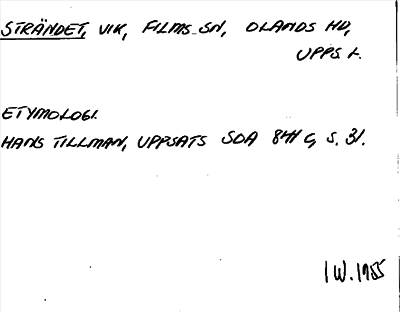 STRÄNDET, VIK, FILMS SN, OLANDS HD,
UPPS L.
ETYMOLOGI.
HANS TILLMAN, UPPSATS SOA 841 C, S. 31.
I W. 1955